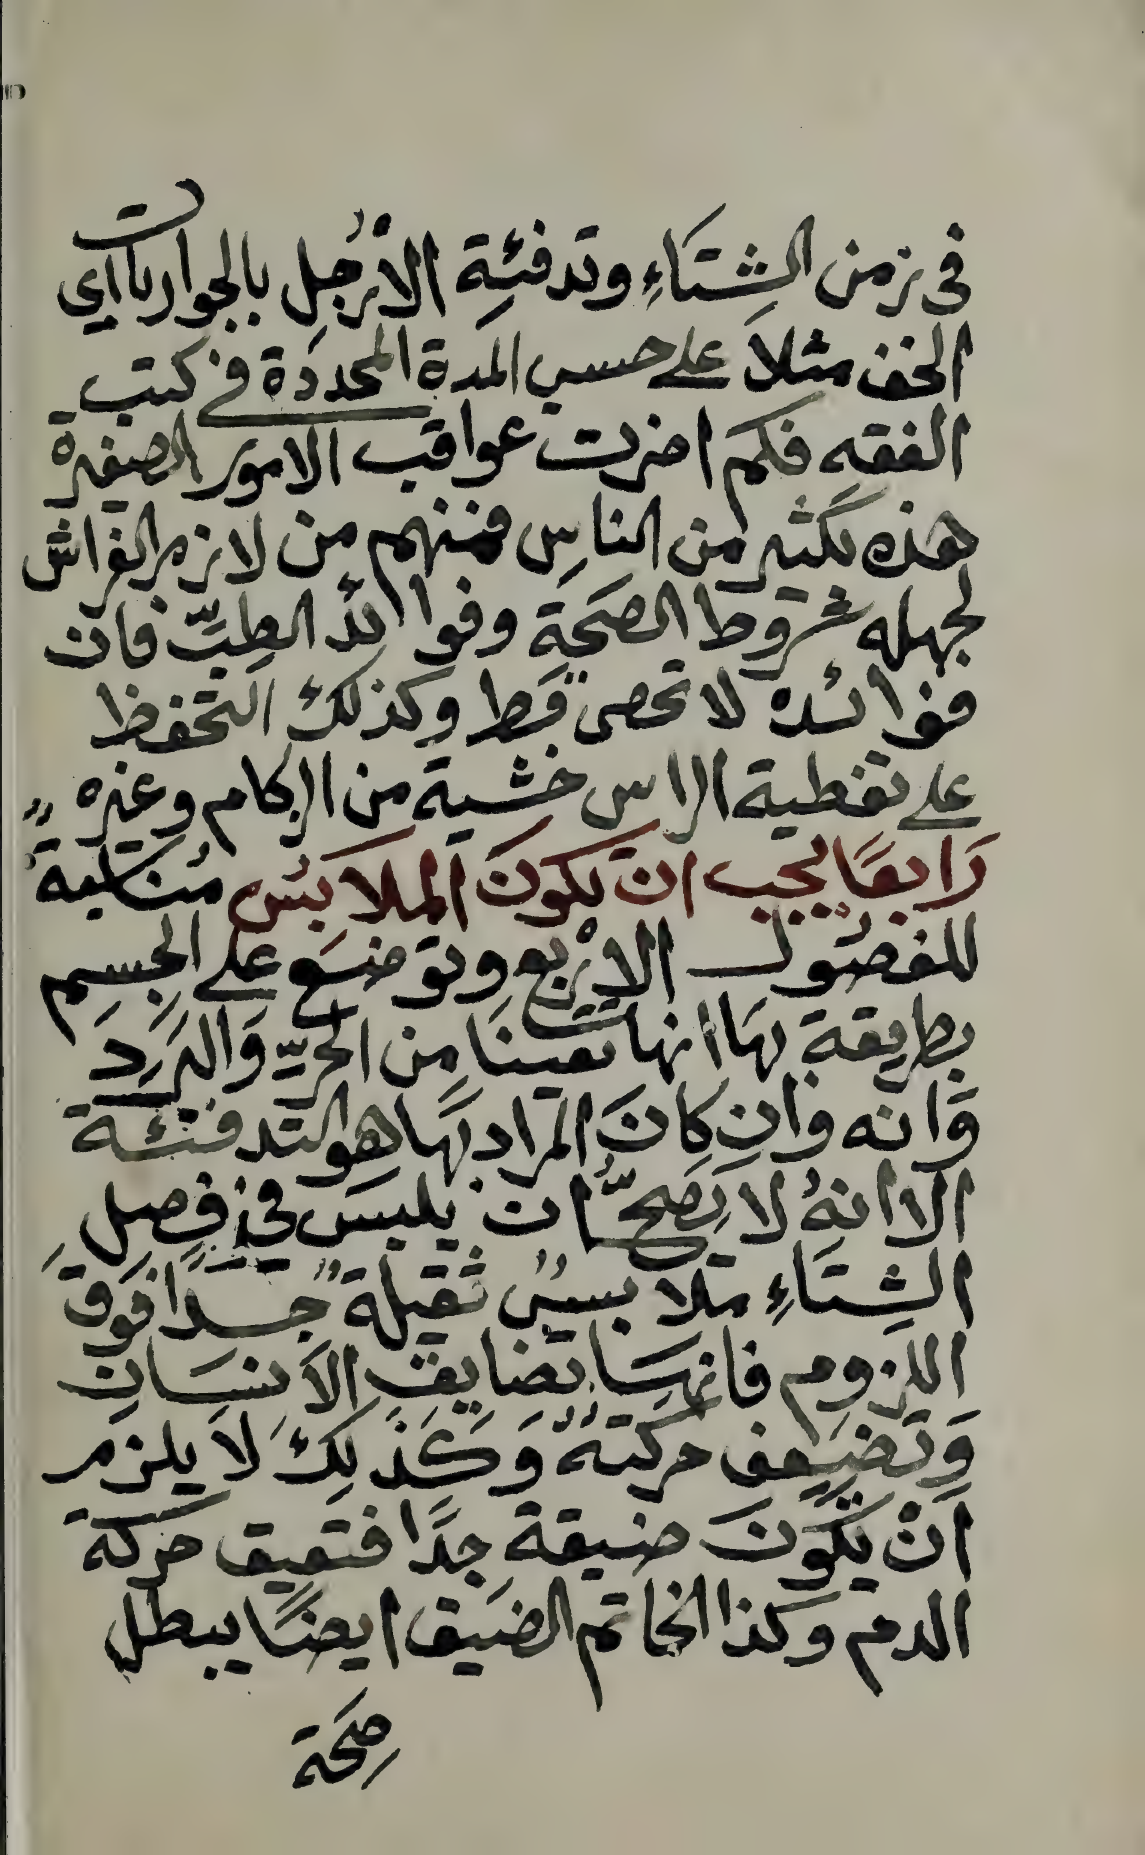 فى زمن الشِتَاءِ وتدفئِة الأرْجُل بالجوارباتِ اي
الخف مثلاً على حسب المدة المحددَة في كتب
الفقه فكم اضرت عواقب الامور الصغيرة
هذه بكثير من الناسِ فمنهم من لازم الفراش
لجهله شروط الصَحَة وفوائد الطبِّ فان
فوائده لا تحصى قط وكذلك التحفظ
على تغطية الراس خشية من الزكام وغيره
رَابعًا يجب ان تكونَ الملاَبسُ مُناسبةً
للفصُول الارْبع وتوضَع على الجِسِم
بطريقة بهَا انها تقينَا مِن الحَرِّ وَالبَرَدِ
وَانه وان كانَ المرَاد بهَا هو التدفئة
الا انهُ لا يَصَحُّ ان يلبسَ في فصلِ
الشِتَاءِ ملابسُ ثقيلة جدًا فوَقَ
اللزوم فانهَا تضايق الاَنسَان
وَتضعِف حركتهُ وَكَذَلِكَ لاَ يلزم
انْ تكوُنَ ضيقة جدًا فتعيق حركة
الدم وكذا الخاتم الضَيق ايضًا يبطل
صِحَة